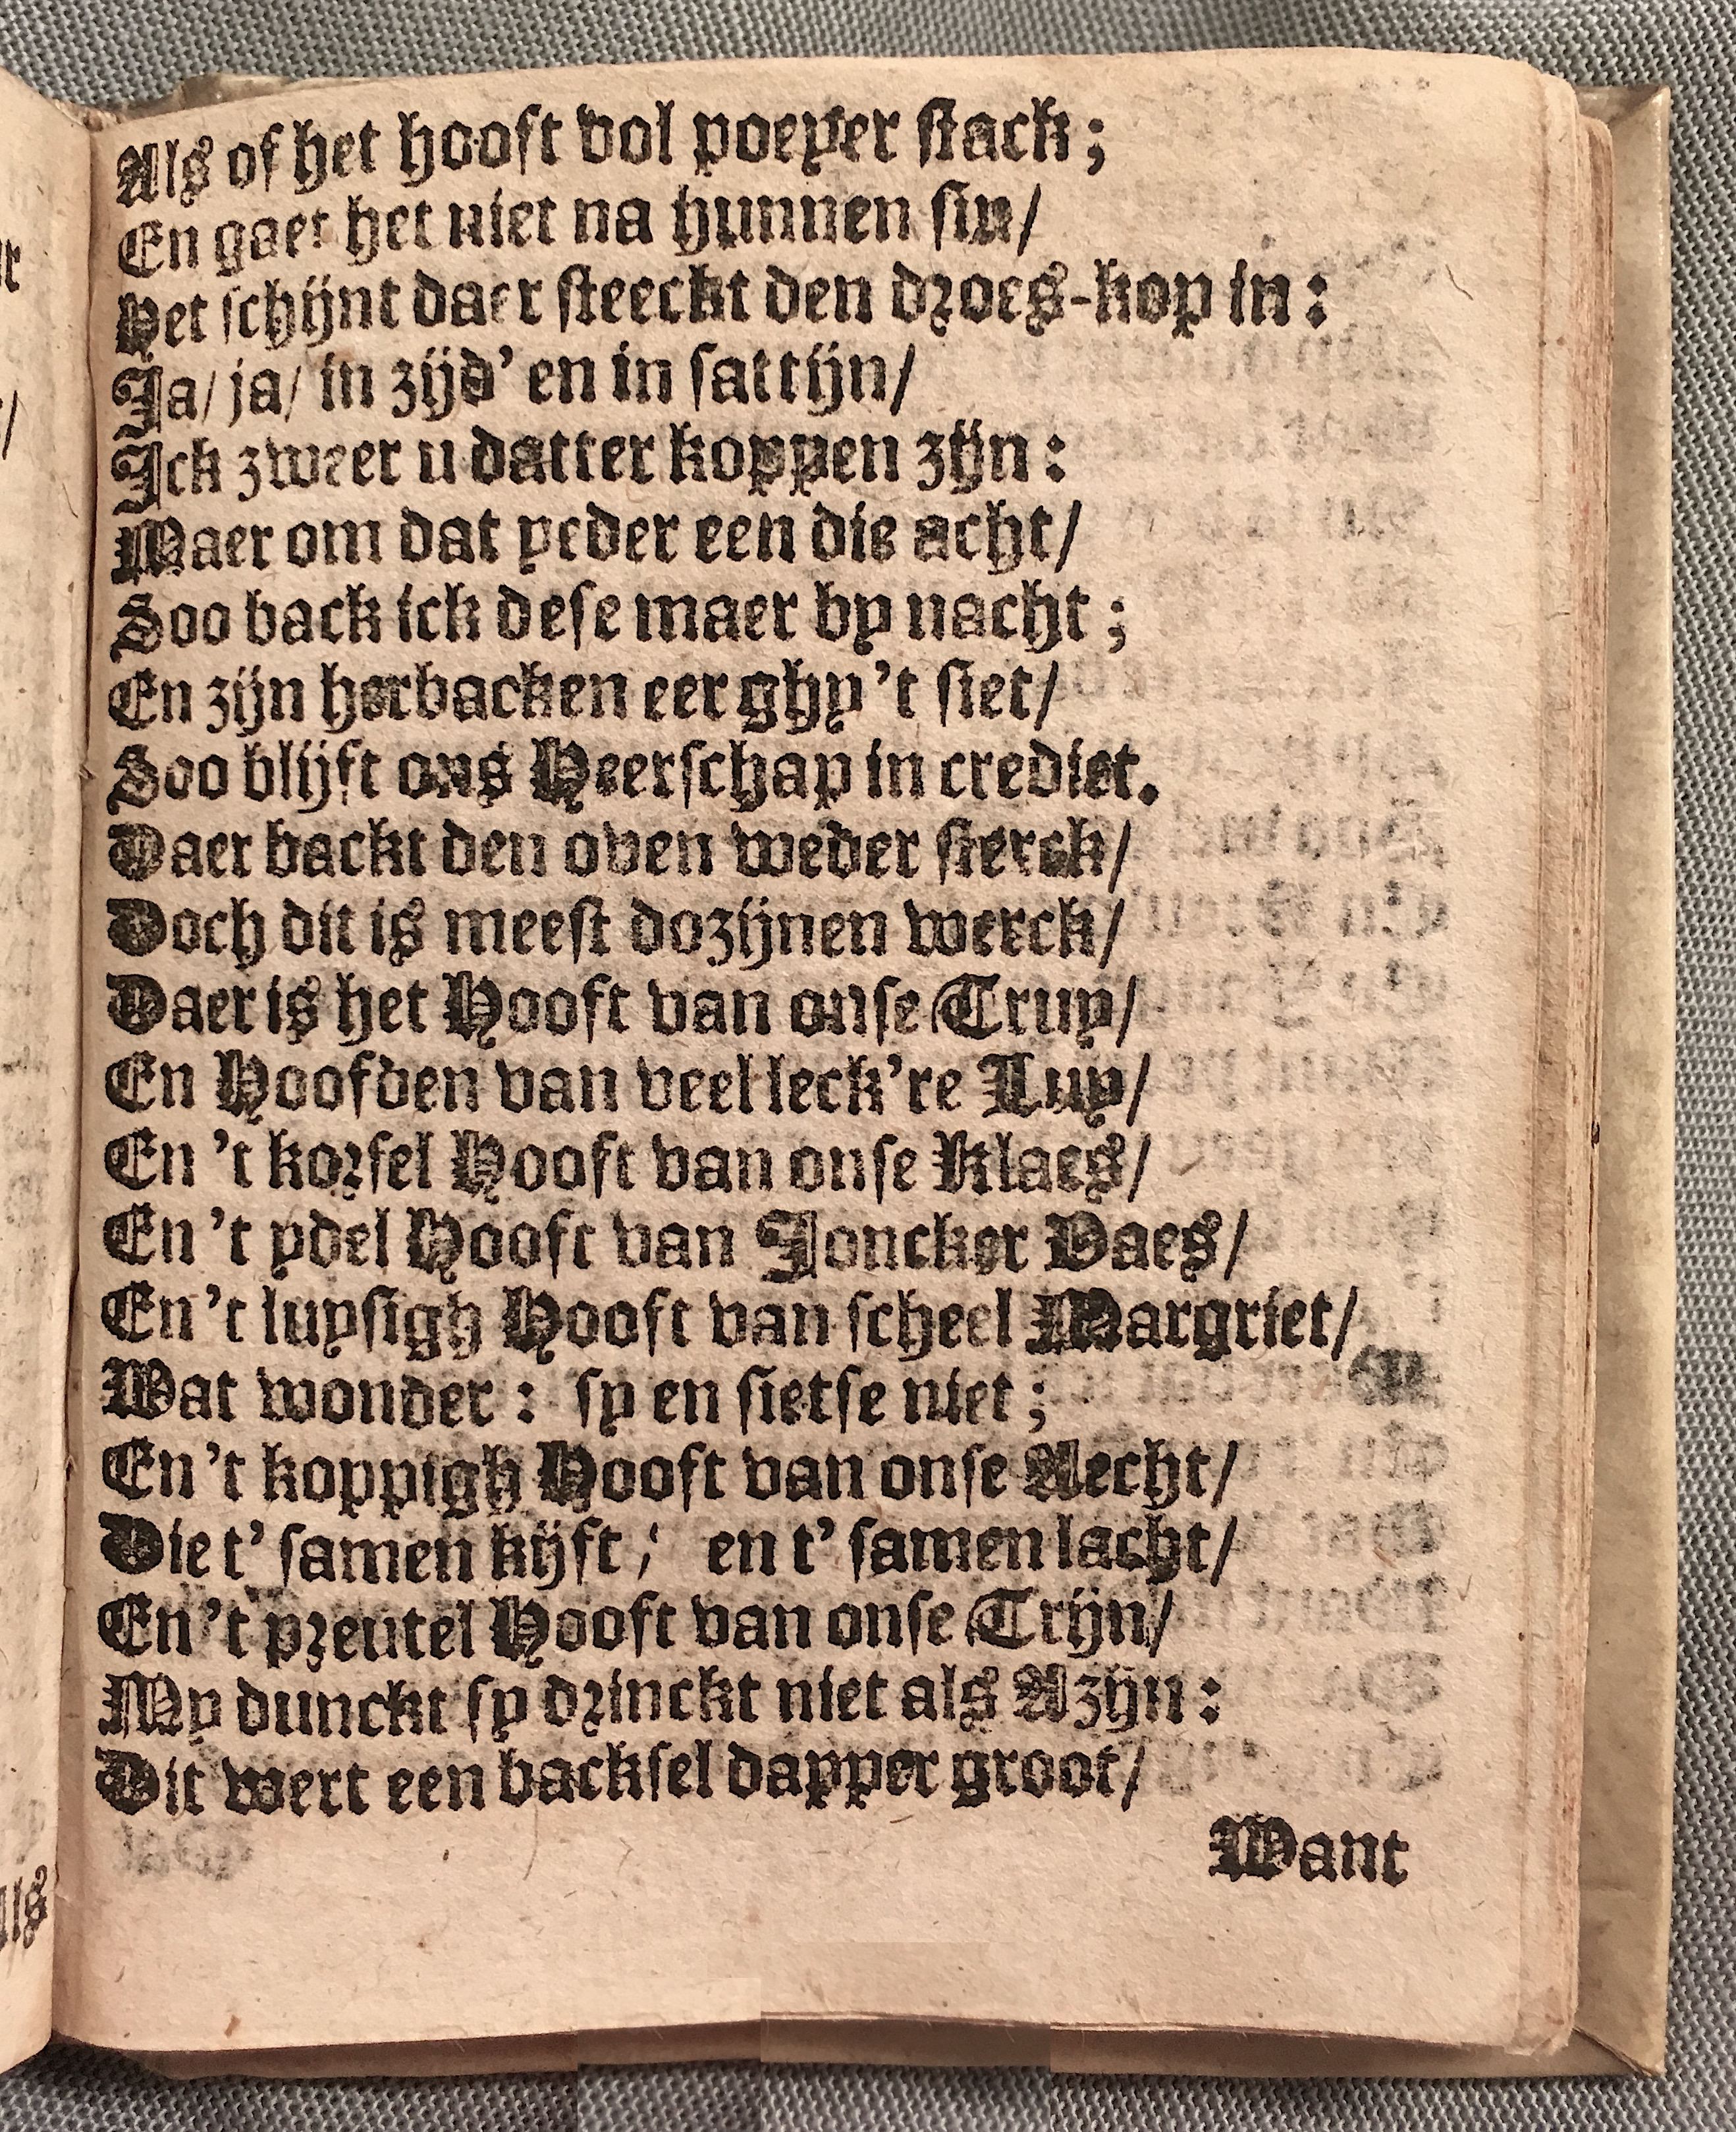 Als of het hooft vol poeyer stack;
En gaet het niet na hunnen sin/
Het schijnt daer steeckt den droes-kop in:
Ja/ ja/ in zijd' en in sattijn/
Ick zweer u datter koppen zijn:
Maer om dat yeder een die acht/
Soo back ick dese maer by nacht;
En zijn herbacken eer ghy 't siet/
Soo blijft ons Heerschap in crediet.
Daer backt den oven weder sterck/
Doch dit is meest dozijnen werck/
Daer is het Hooft van onse Truy/
En Hoofden van veel leck're Luy/
En 't korsel Hooft van onse Klaes/
En 't ydel Hooft van Joncker Daes/
En 't luysigh Hooft van scheel Margriet/
Wat wonder: sy en sietse niet;
En 't koppigh Hooft van onse Aecht/
Die t' samen kijft; en t' samen lacht/
En 't preutel Hooft van onse Trijn/
My dunckt sy drinckt niet als Azijn:
Dit wert een backsel dapper groot/
Want